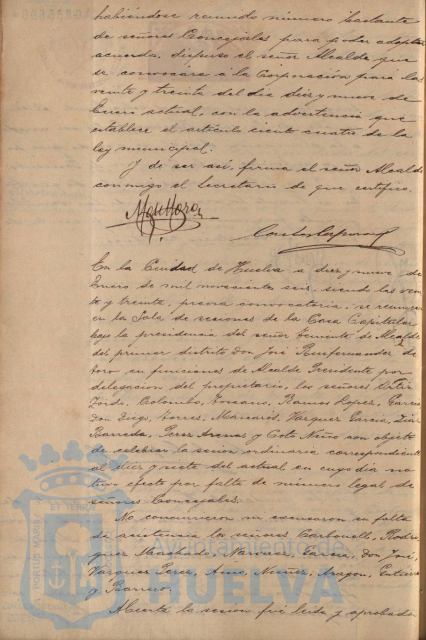 habiéndose reunido número bastante
de señores Concejales para poder adoptar
acuerdo, dispuso el señor Alcalde que
se convocara a la Corporación para las
veinte y treinta del dia diez y nueve de
Enero actual, con la advertencia que
establece el artículo ciento cuatro de la
ley municipal.
Y de ser asi, firma el señor Alcalde
conmigo el Secretario de que certifico.
En la Ciudad de Huelva a diez y nueve de
Enero de mil novecientos seis, siendo las vein
te y treinta, previa convocatoria, se reunieron
en la Sala de sesiones de la Casa Capitular
bajo la presidencia del señor Teniente de Alcalde
del primer distrito Don José Hernández de
toro en funciones de Alcalde Presidente por
delegación del propietario, los señores
Colombo, Toscano, Ramos Lopez, Garcia
Don Diego, Torres, Vazquez Garcia, Diaz
Barreda, Perez Arenas y Coto Niño con objeto
de celebrar la sesión ordinaria correspondiente
al diez y siete del actual en cuyo dia no
tuvo efecto por falta de número legal de
señores Concejales.
No concurrieron ni excusaron su falta
de asistencia los señores Carbonell, Rodri
guez Machado, Garcia, Don José,
Vazquez Perez, Nuñez, Aragon,
y Barreiro
Abierta la sesión fué leida y aprobada
ET TERRÆ
PORTUS MARIS
Ayuntamiento de
HUELVA